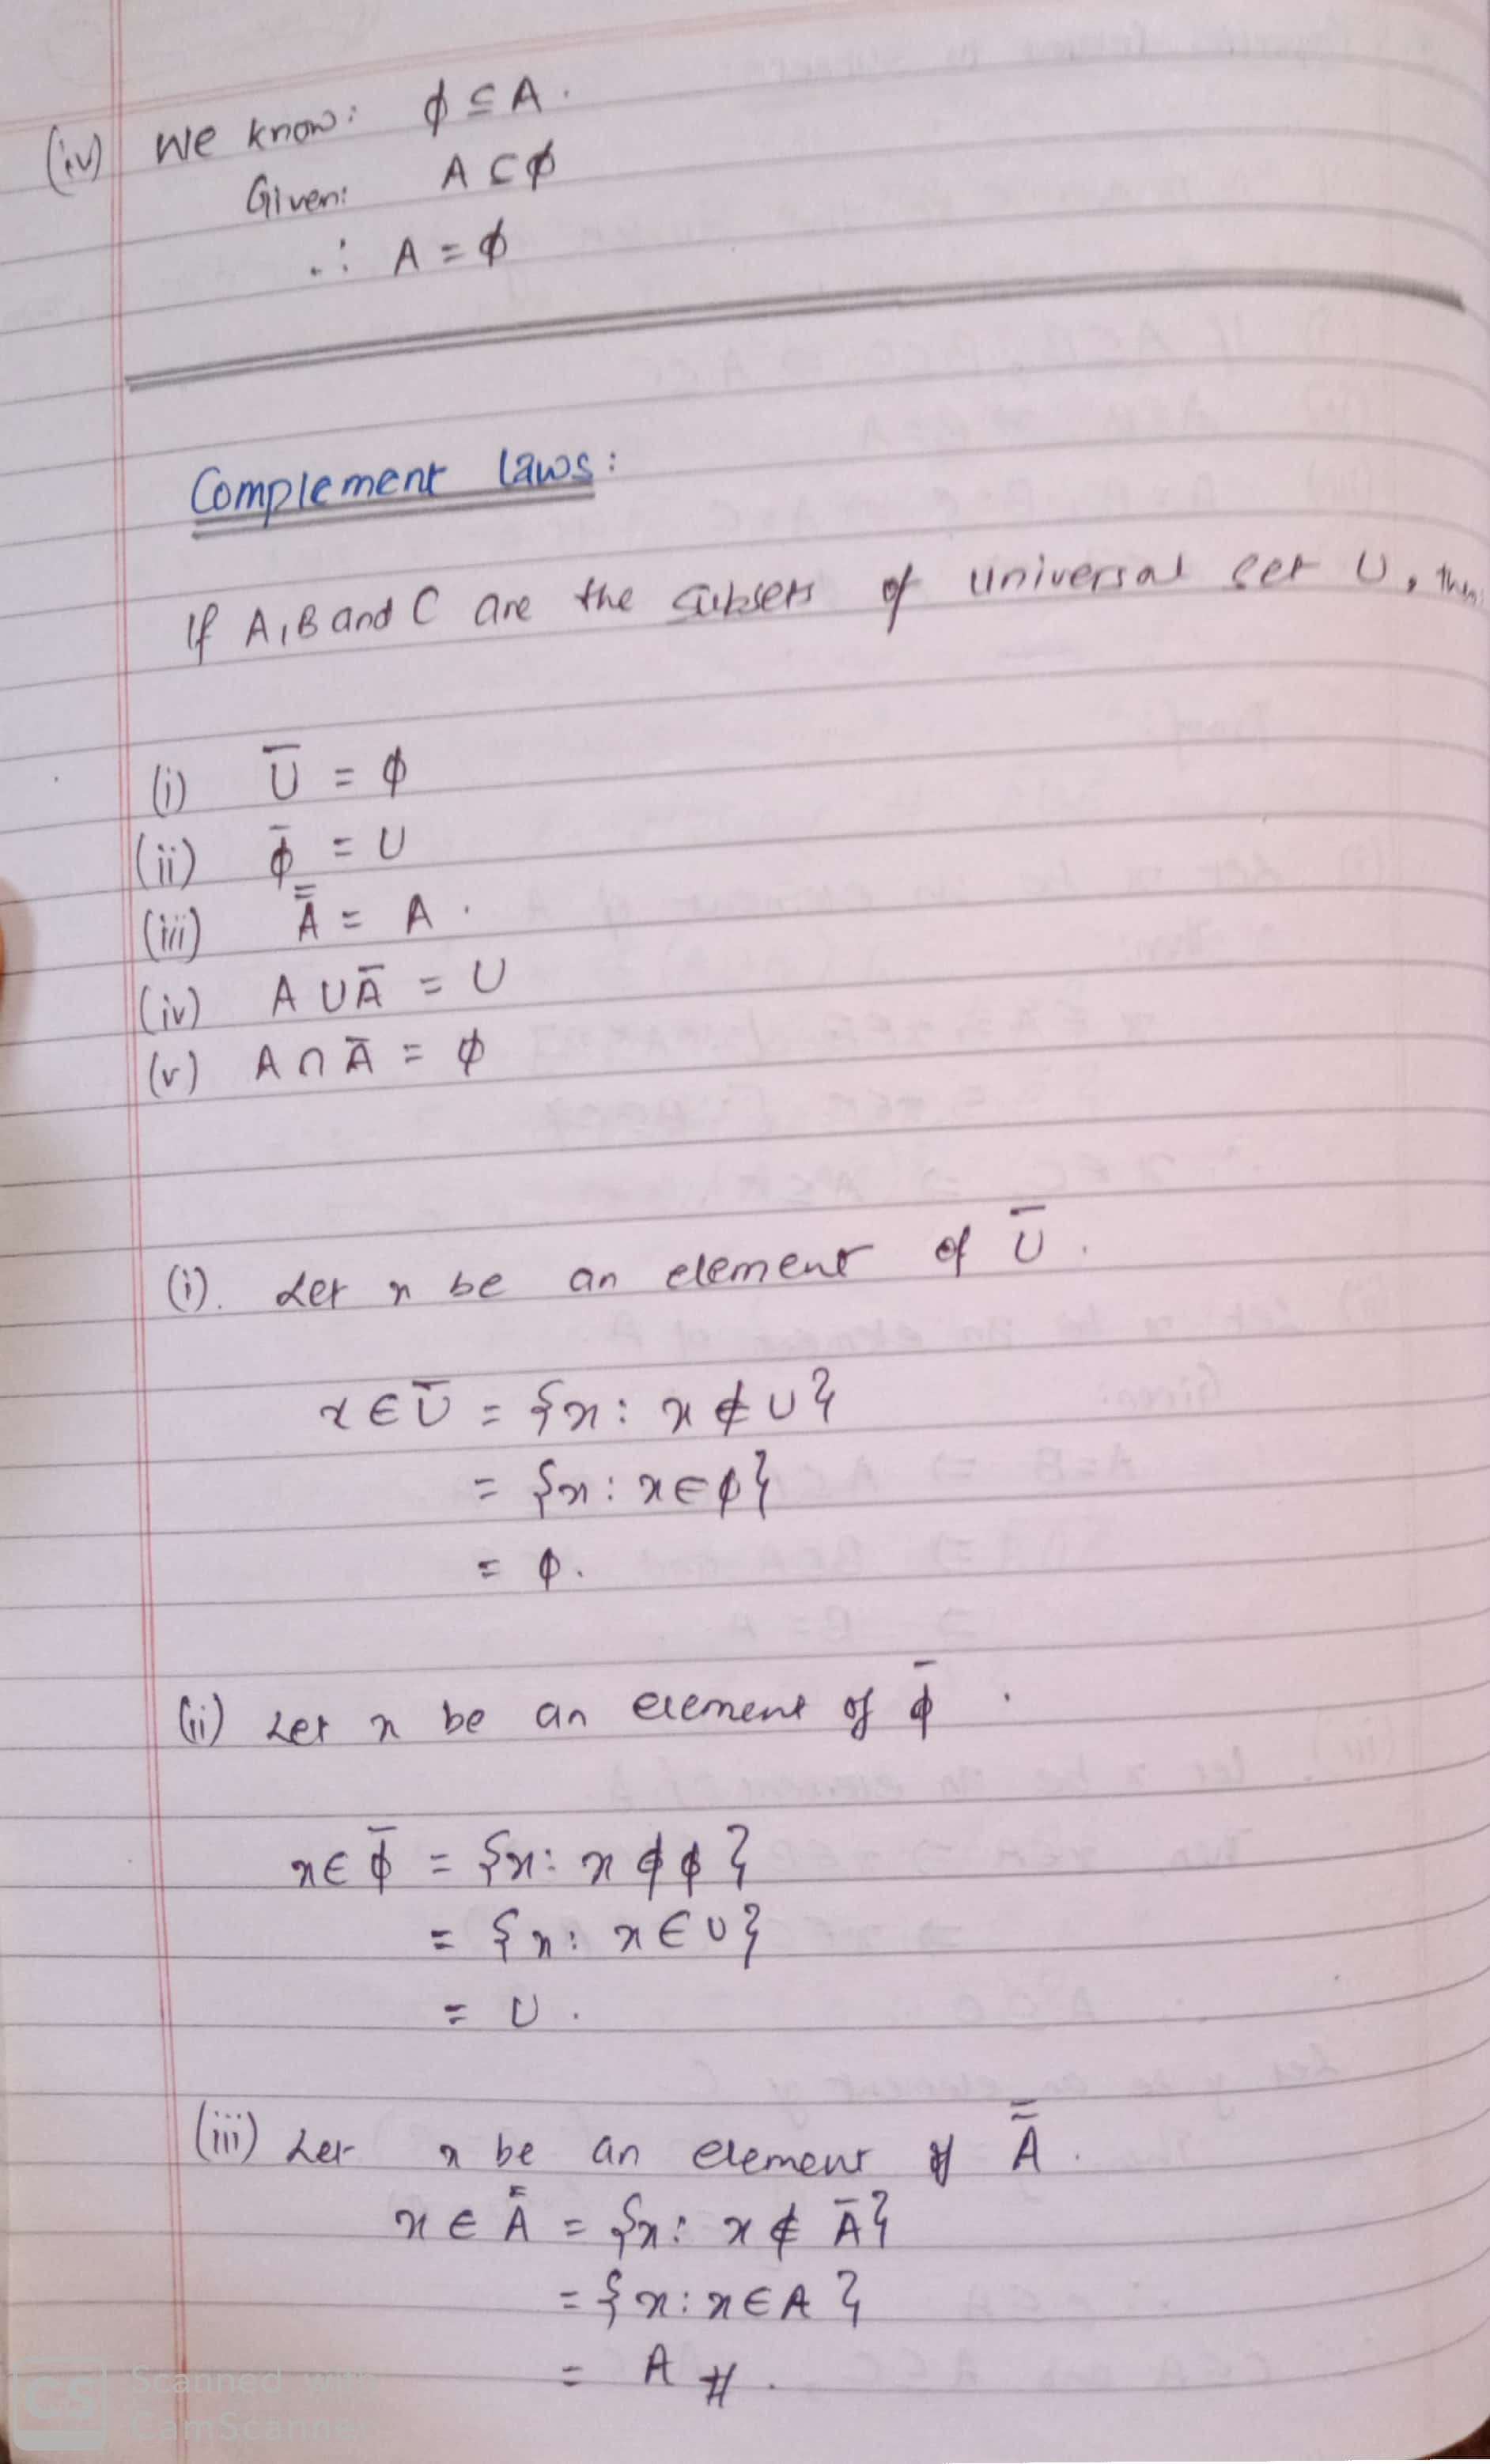 (iv) We know: ϕ ⊆ A.
Given: A ⊂ ϕ
∴ A = ϕ
Complement laws:
If A, B and C are the subsets of universal set U, then
(i) U̅ = ϕ
(ii) ϕ̅ = U
(iii) A̿ = A.
(iv) A ∪ A̅ = U
(v) A ∩ A̅ = ϕ
(i). Let x be an element of U̅.
x ∈ U̅ = {x: x ∉ U}
= {x: x ∈ ϕ}
= ϕ.
(ii) Let x be an element of ϕ̅.
x ∈ ϕ̅ = {x: x ∉ ϕ}
= {x: x ∈ U}
= U.
(iii) Let x be an element of A̿.
x ∈ A̿ = {x: x ∉ A̅}
= {x: x ∈ A}
= A #.
CS Scanned with
CamScanner